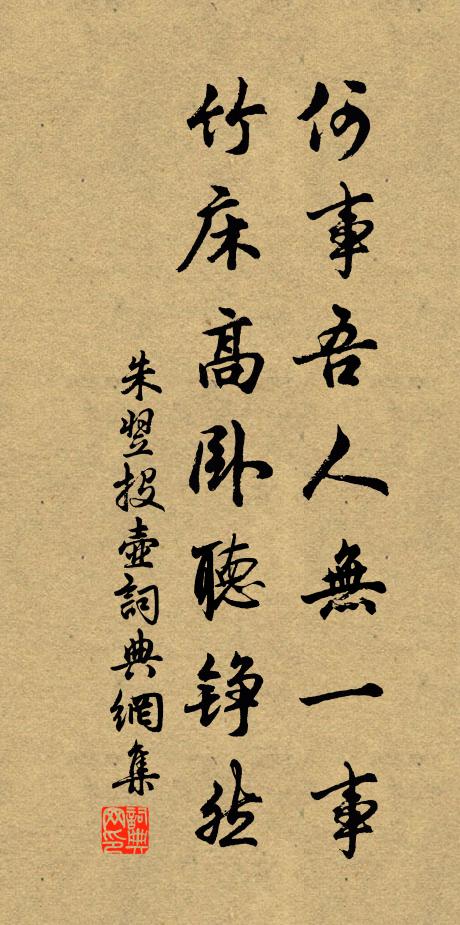 何事吾人無一事
竹床高卧聽錚然
朱翌投壺詞典網集
詞典網印